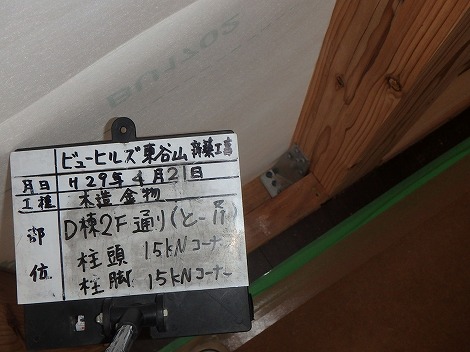 ビューヒルズ東谷山 新築工事
月日 H29年4月21日
工種 木造金物
部位 D棟2F通り(と-
柱頭 15kNコーナー
柱脚 15kNコーナー